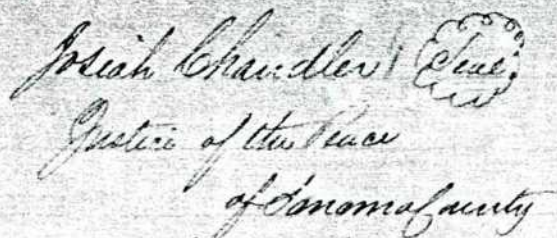 Josiah Chandler Seal
Justice of the Peace
of Sonoma County